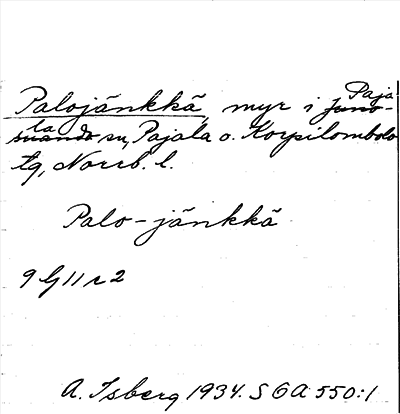 Palojänkkä, myr i Juno- Paja-
suando la sn, Pajala o. Korpilombolo
tg, Norrb. l.
Palo-jänkkä
9 G 11 r 2
A. Isberg 1934. SOA 550:1